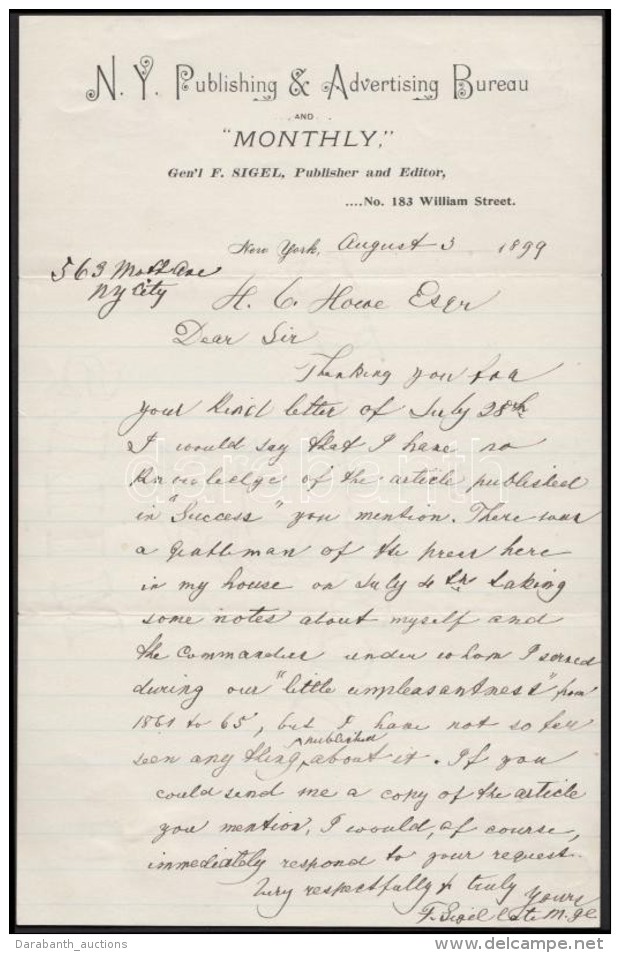 N. Y. Publishing & Advertising Bureau
AND
"MONTHLY,"
Gen'l F. SIGEL, Publisher and Editor,
....No. 183 William Street.
New York, August 3 1899
563 Mott Ave
NY City
H. C. Howe Esqr
Dear Sir
Thanking you for
your kind letter of July 28th
I would say that I have no
knowledge of the article published
in "Success" you mention. There was
a gentleman of the press here
in my house on July 4th taking
some notes about myself and
the commander under whom I served
during our "little unpleasantness" from
1861 to 65, but I have not so far
seen any thing published about it. If you
could send me a copy of the article
you mention, I would, of course,
immediately respond to your request.
Very respectfully & truly yours
F. Sigel late M. Gl
darabanth
Darabanth_auctions
www.delcampe.net